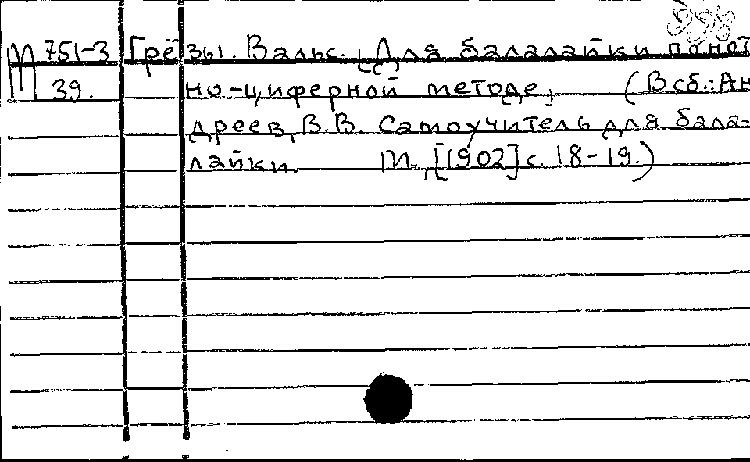 М 751-3 Грёзы. Вальс. [Для балалайки по нот
39. но-циферной методе, (В сб.: Ан
дреев, В.В. Самоучитель для бала-
лайки. М., [1902] с. 18-19.)